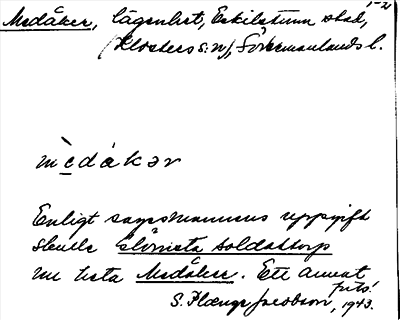 1-2
Medåker, lägenhet, Eskilstuna stad,
(Klosters s:n), Södermanlands l.
mèdåkər
Enligt sagesmannens uppgift
skulle soldattorp
nu heta Medåker. Ett annat
finns!
S. Jacobson, 1943.